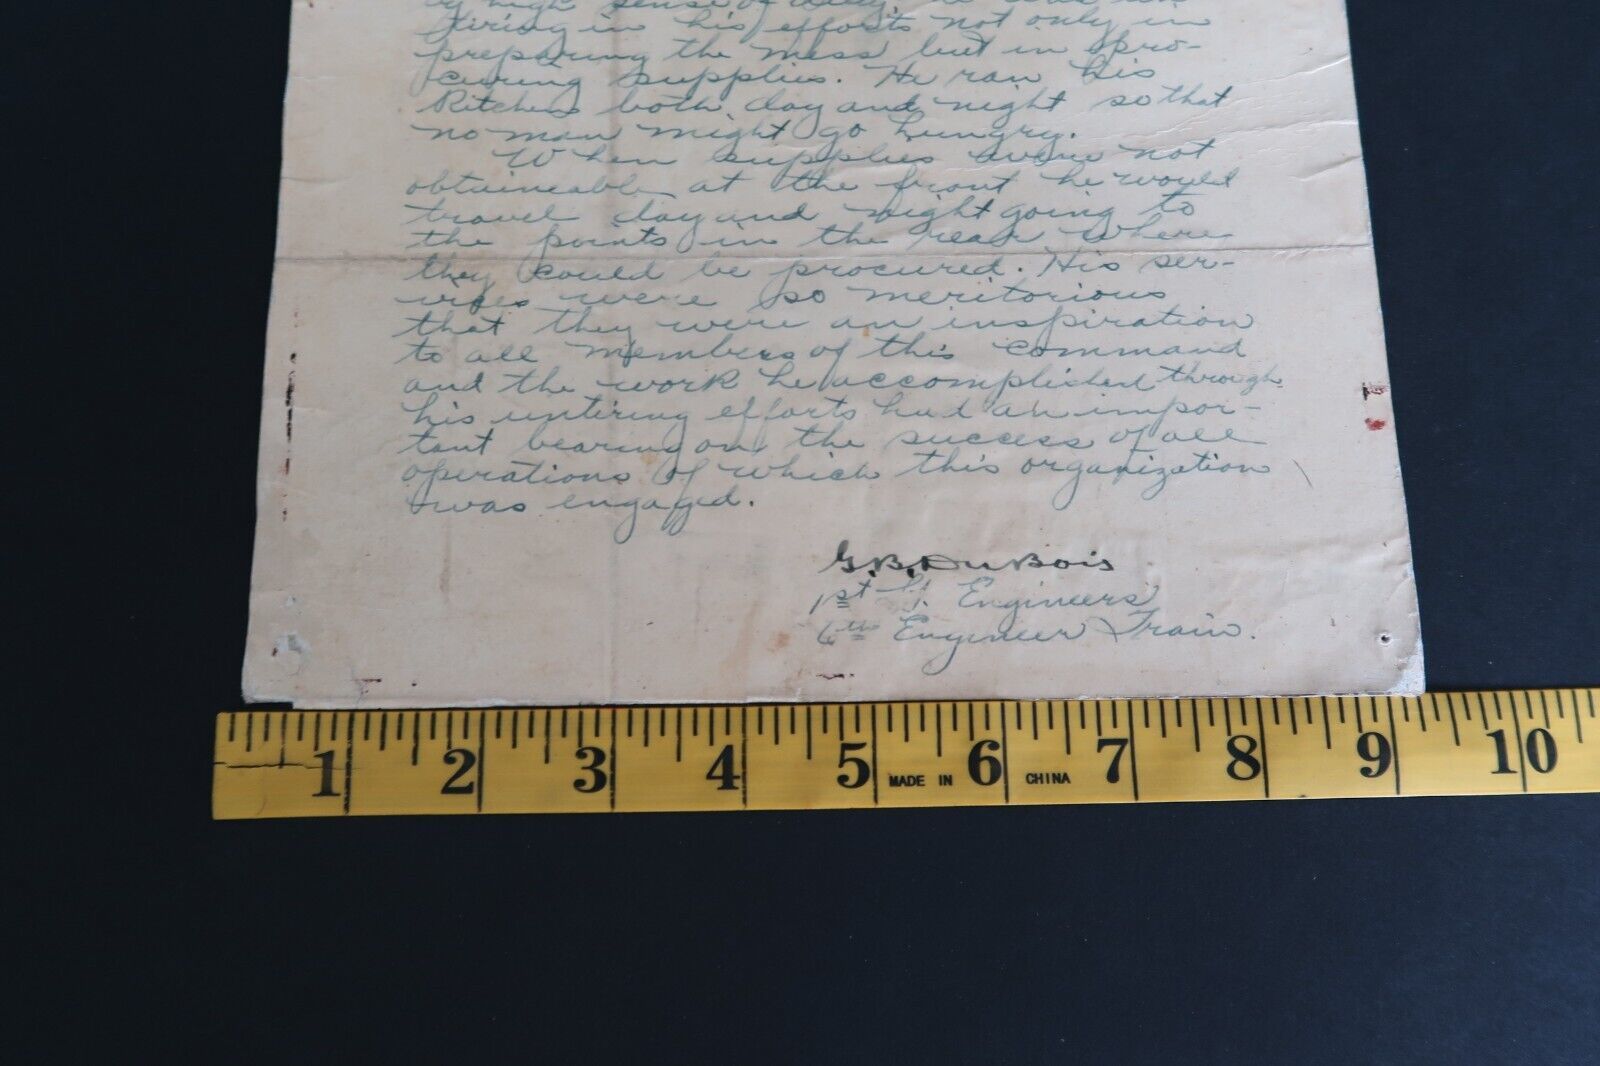 by high sense of duty. He was un-
tiring in his efforts not only in
preparing the mess but in pro-
curing supplies. He ran his
Kitchens both day and night so that
no man might go hungry.
When supplies were not
obtaineable at the front he would
travel day and night going to
the points in the rear where
they could be procured. His ser-
vices were so meritorious
that they were an inspiration
to all members of this command
and the work he accomplished through
his untiring efforts had an impor-
tant bearing on the success of all
operations of which this organization
was engaged.
G.B. DuBois
1st Lt. Engineers
6th Engineer Train.
1 2 3 4 5 MADE IN 6 CHINA 7 8 9 10